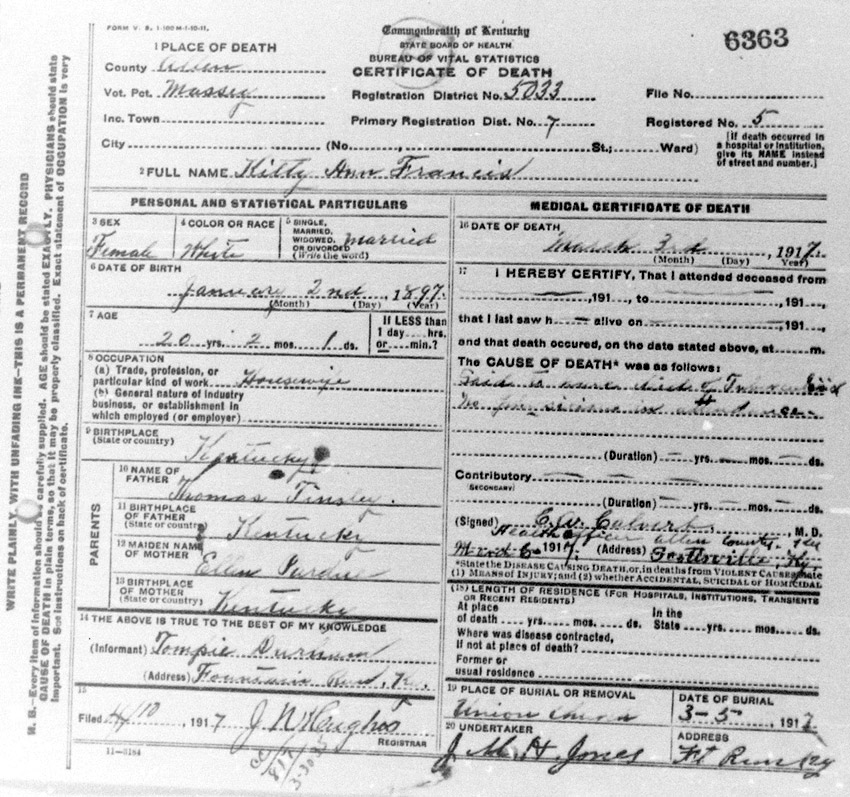 FORM V. S. 1-100 M-1-10-11.
Commonwealth of Kentucky
STATE BOARD OF HEALTH.
BUREAU OF VITAL STATISTICS
CERTIFICATE OF DEATH
6363
1 PLACE OF DEATH
County Allen
Vot. Pct. Massey
Registration District No. 5033
File No.
Inc. Town
Primary Registration Dist. No. 7
Registered No. 5
City (No. St.; Ward)
[If death occurred in
a hospital or institution,
give its NAME instead
of street and number.]
2 FULL NAME Kitty Ann Francis
PERSONAL AND STATISTICAL PARTICULARS
3 SEX
Female
4 COLOR OR RACE
White
5 SINGLE,
MARRIED,
WIDOWED,
OR DIVORCED
(Write the word)
Married
6 DATE OF BIRTH
January 2nd, 1897.
(Month) (Day) (Year)
7 AGE
20 yrs. 2 mos. 1 ds.
If LESS than
1 day hrs.
or min.?
8 OCCUPATION
(a) Trade, profession, or
particular kind of work Housewife
(b) General nature of industry
business, or establishment in
which employed (or employer)
9 BIRTHPLACE
(State or country)
Kentucky
PARENTS
10 NAME OF
FATHER
Thomas Tinsley.
11 BIRTHPLACE
OF FATHER
(State or country)
Kentucky
12 MAIDEN NAME
OF MOTHER
Ellen Purdue
13 BIRTHPLACE
OF MOTHER
(State or country)
Kentucky
14 THE ABOVE IS TRUE TO THE BEST OF MY KNOWLEDGE
(Informant) Tompie Durham
(Address) Fountain Run, Ky.
15
Filed 4/10, 1917 J N Hughes
REGISTRAR
11-3184
MEDICAL CERTIFICATE OF DEATH
16 DATE OF DEATH
March 3rd, 1917.
(Month) (Day) Year)
17 I HEREBY CERTIFY, That I attended deceased from
, 191 , to , 191 ,
that I last saw h alive on , 191 ,
and that death occured, on the date stated above, at m.
The CAUSE OF DEATH* was as follows:
Said to have died of
No physicians in attendance.
(Duration) yrs. mos. ds.
Contributory
SECONDARY)
(Duration) yrs. mos. ds.
(Signed) E. W. Culvert. M. D.
Health officer Allen County.
1917. (Address) Scottsville, Ky.
*State the DISEASE CAUSING DEATH, or, in deaths from VIOLENT CAUSES state
(1) MEANS OF INJURY; and (2) whether ACCIDENTAL, SUICIDAL OR HOMICIDAL
(18) LENGTH OF RESIDENCE (FOR HOSPITALS, INSTITUTIONS, TRANSIENTS
OR RECENT RESIDENTS)
At place
of death yrs. mos. ds.
In the
State yrs. mos. ds.
Where was disease contracted,
if not at place of death?
Former or
usual residence
19 PLACE OF BURIAL OR REMOVAL
Union Church
DATE OF BURIAL
3-3-, 1917
20 UNDERTAKER
J. M. H. Jones
ADDRESS
Ft Run Ky
WRITE PLAINLY, WITH UNFADING INK—THIS IS A PERMANENT RECORD
N. B.—Every item of information should be carefully supplied. AGE should be stated EXACTLY. PHYSICIANS should state
CAUSE OF DEATH in plain terms, so that it may be properly classified. Exact statement of OCCUPATION is very
important. See instructions on back of certificate.